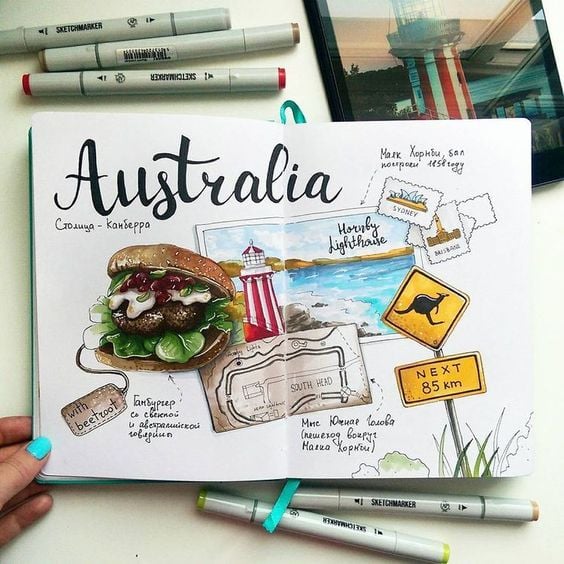 SKETCHMARKER
SKETCHMARKER
Australia
Столица - Канберра
Маяк Хорнби, был
построен 1858 году
SYDNEY
BRISBANE
Hornby
Lighthouse
NEXT
85 km
SOUTH HEAD
with
beetroot
Гамбургер
со свеклой
и австралийской
говядины
Мыс Южная Голова
(пешеход вокруг
Маяка Хорнби)
SKETCHMARKER
SKETCHMARKER